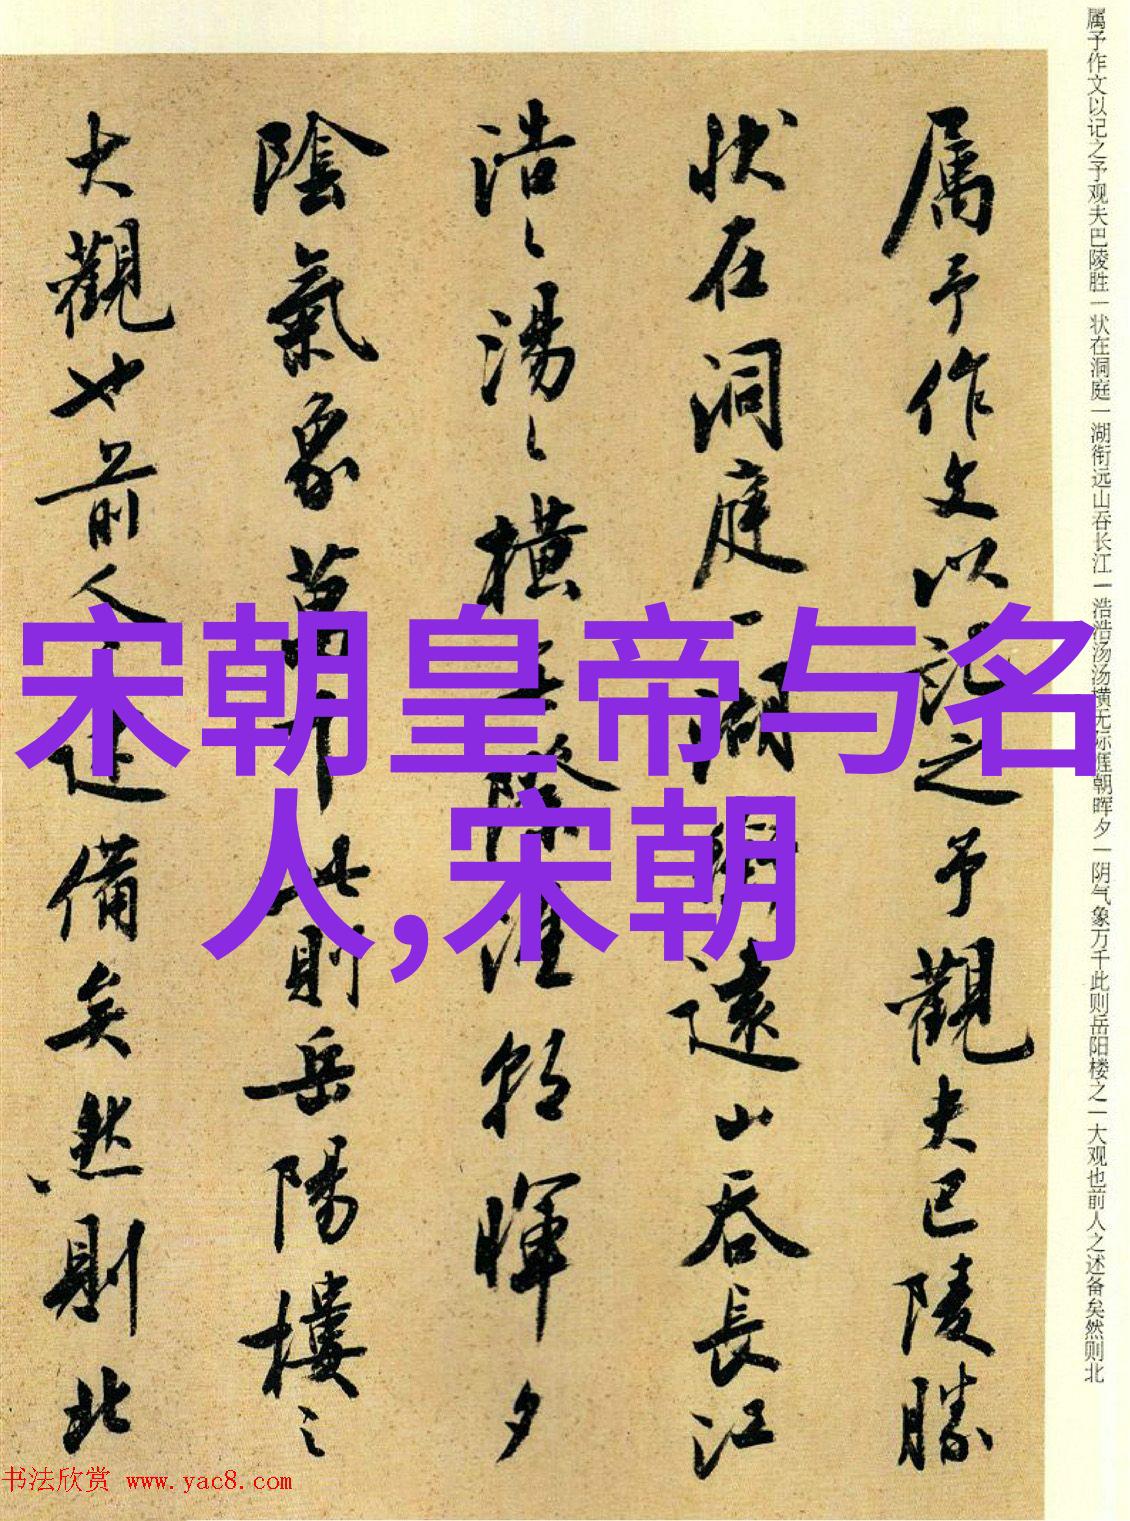 属予作文以记之予观夫巴陵胜一状在洞庭一湖衔远山吞长江一浩浩汤汤横无际涯朝晖夕一阴气象万千此则岳阳楼之一大观也前人之述备矣然则北
属予作文以記之予觀夫巴陵勝
状在洞庭一湖銜遠山吞長江
浩〻湯〻橫無際涯朝暉夕
陰氣象萬千此則岳陽樓之
大觀也前人之述備矣然則北
宋朝皇帝与名
人,宋朝
书法欣赏 www.yac8.com